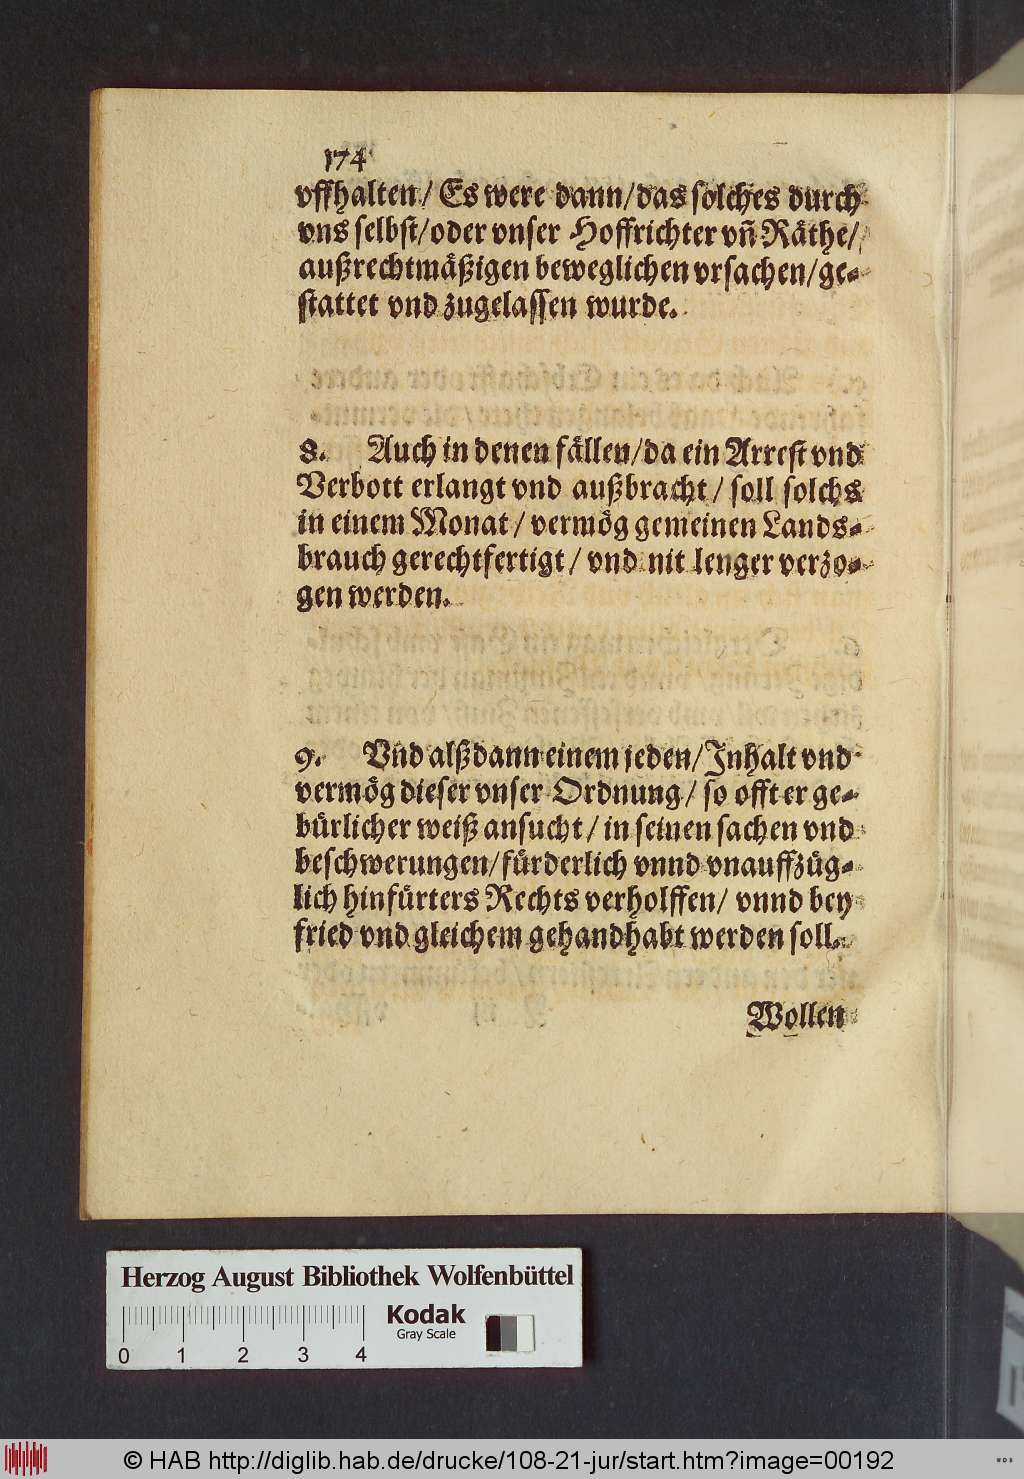 174
vffhalten / Es were dann / das solches durch
vns selbst / oder vnser Hoffrichter vñ Räthe /
außrechtmäßigen beweglichen vrsachen / ge-
stattet vnd zugelassen wurde.
8. Auch in denen fällen / da ein Arrest vnd
Verbott erlangt vnd außbracht / soll solchs
in einem Monat / vermög gemeinen Lands-
brauch gerechtfertigt / vnd nit lenger verzo-
gen werden.
9. Vnd alßdann einem jeden / Inhalt vnd
vermög dieser vnser Ordnung / so offt er ge-
bürlicher weiß ansucht / in seinen sachen vnd
beschwerungen / fürderlich vnnd vnauffzüg-
lich hinfürters Rechts verholffen / vnnd bey
fried vnd gleichem gehandhabt werden soll.
Wollen
Herzog August Bibliothek Wolfenbüttel
Kodak
Gray Scale
0 1 2 3 4
© HAB http://diglib.hab.de/drucke/108-21-jur/start.htm?image=00192